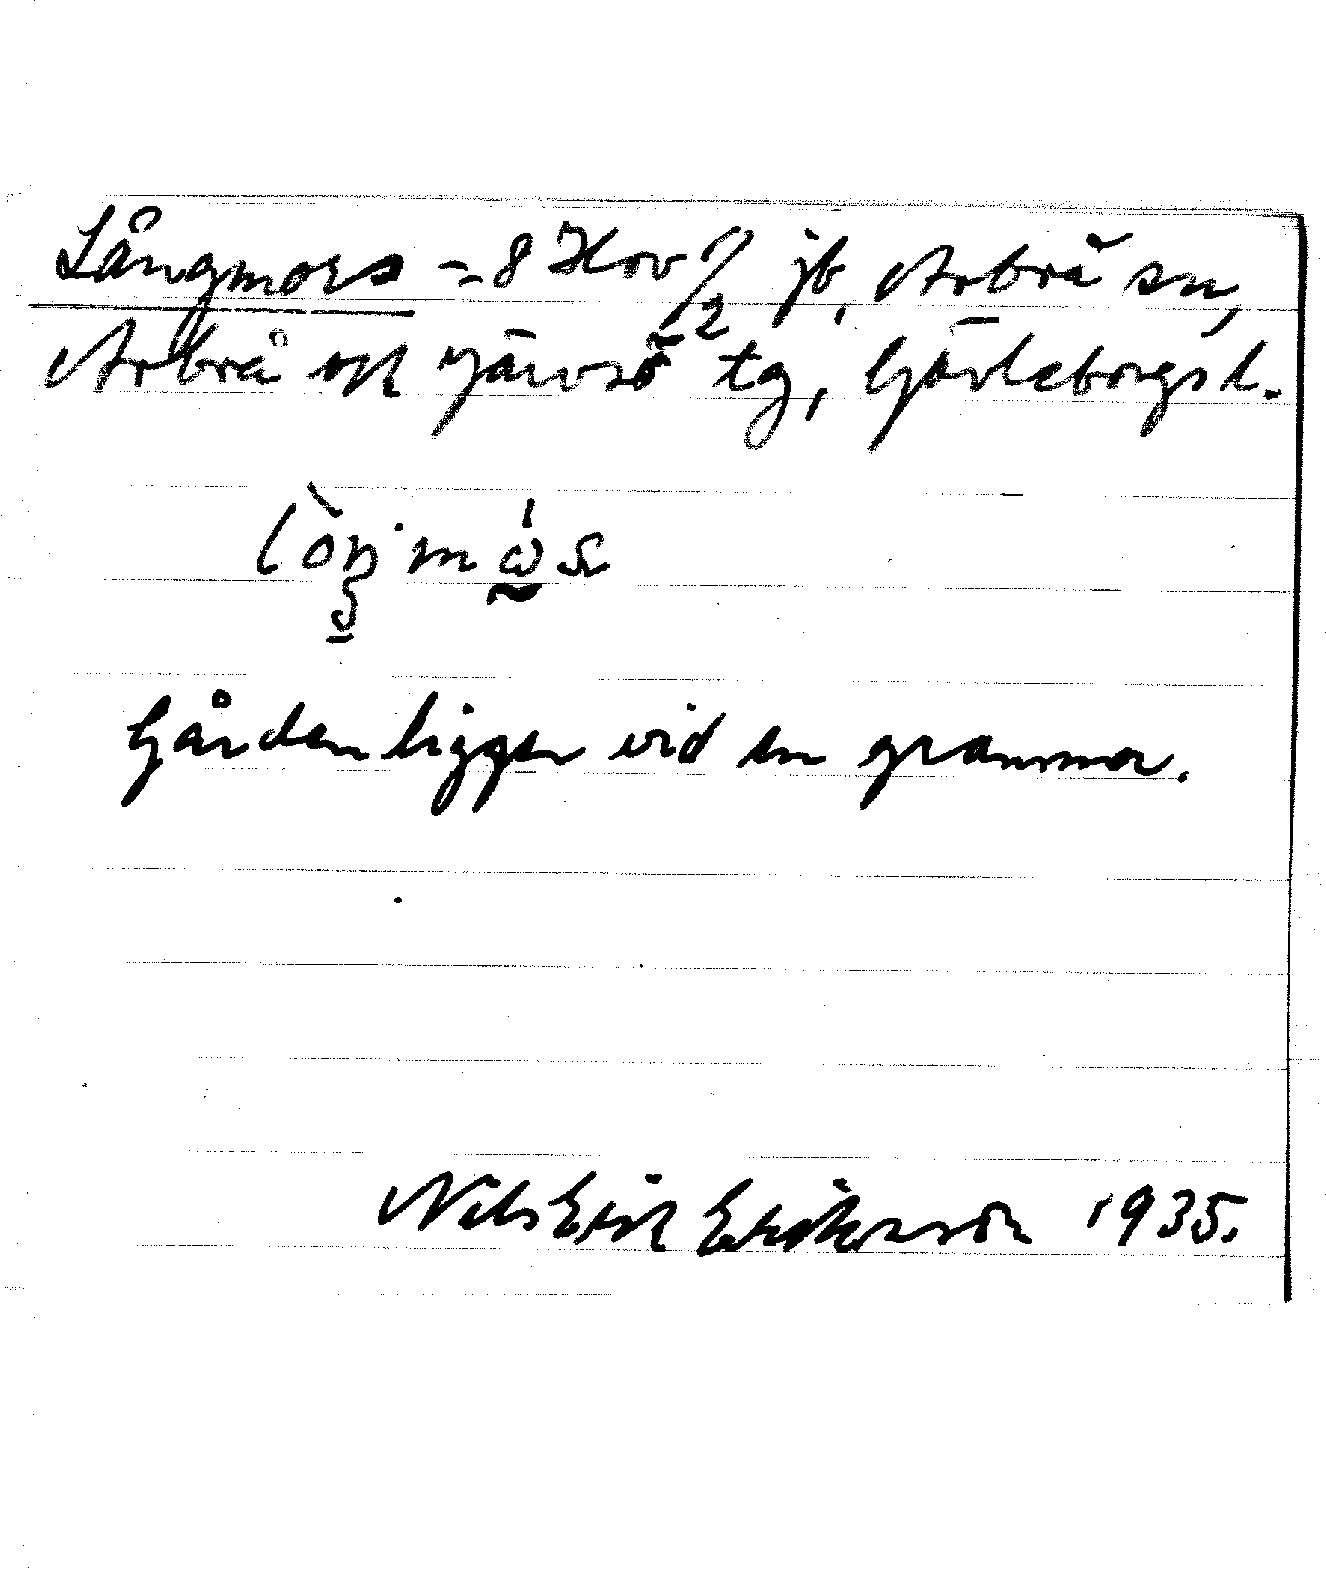 Långmors = 8 Hov 1/2 jb, Arbrå sn,
Arbrå och Järvsö tg, Gävleborgs l.
Gården ligger vid en granmor.
Nils Erik Eriksson 1935.